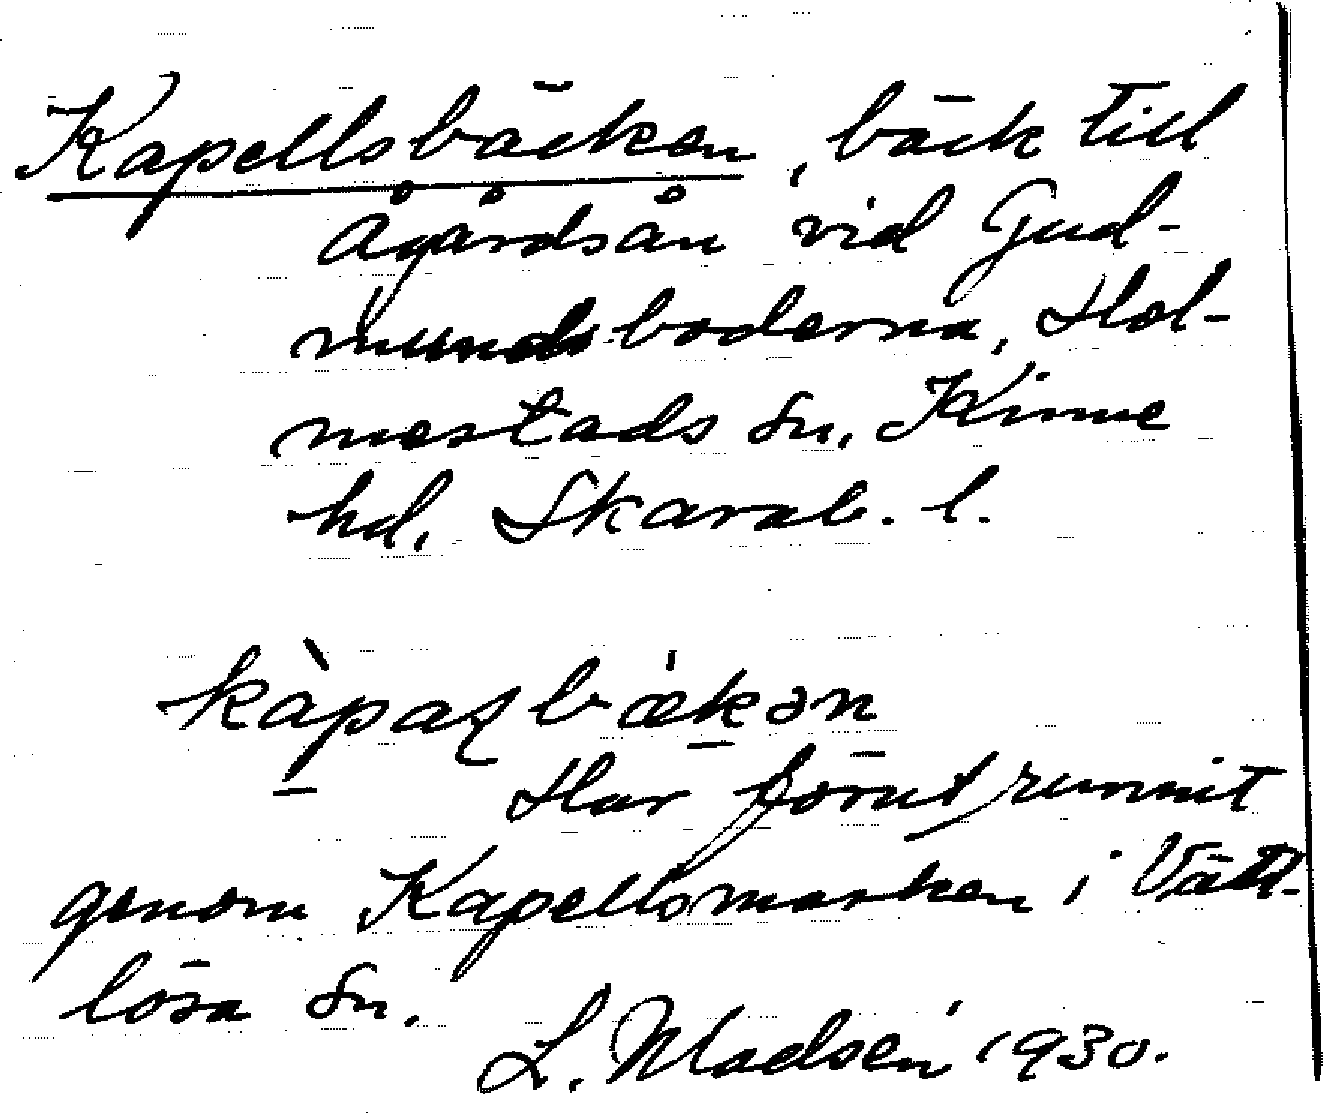 Kapellsbäcken, bäck till
Ågårdsån vid Gud-
mundsboderna, Hol-
mestads sn, Kinne
hd, Skarab. l.
kàpaʃbækən
Har förut runnit
genom Kapellsmarken i Vätt-
lösa sn.
L. Madsén 1930.